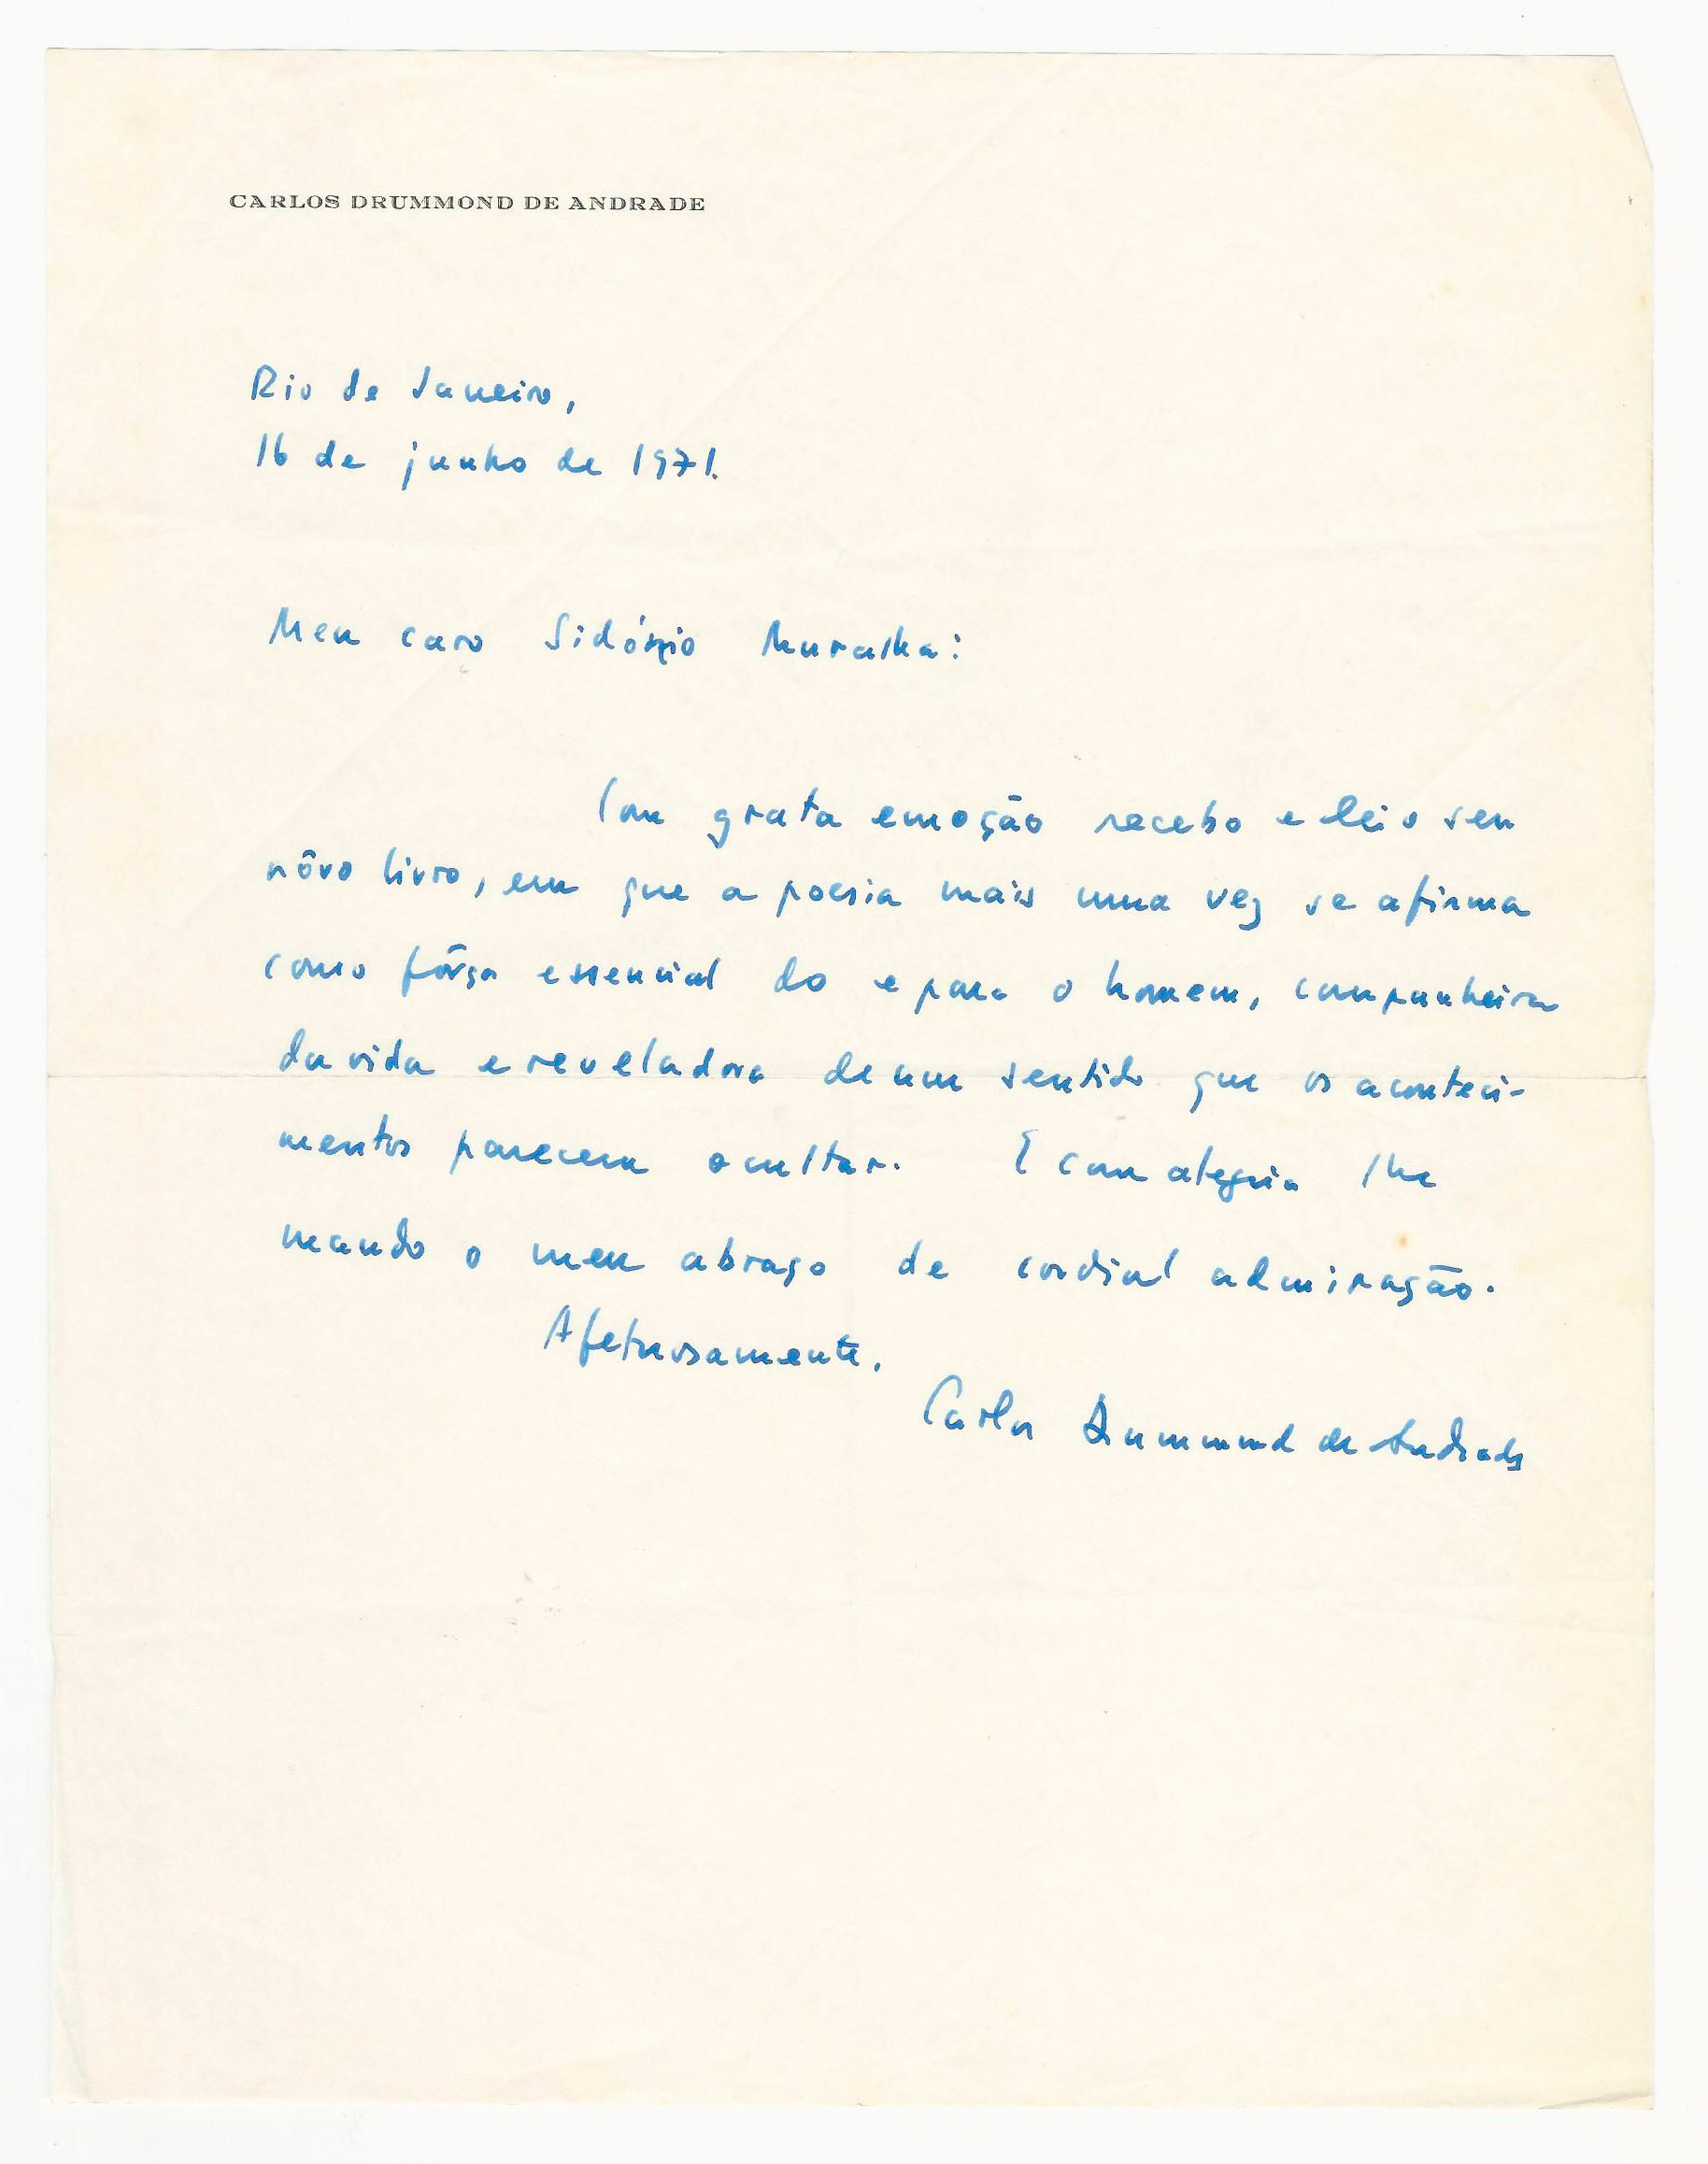 CARLOS DRUMMOND DE ANDRADE
Rio de Janeiro,
16 de junho de 1971.
Meu caro Sidónio Muralha:
Com grata emoção recebo e leio seu
nôvo livro, em que a poesia mais uma vez se afirma
como fôrça essencial do e para o homem, companheira
da vida e reveladora de um sentido que os aconteci-
mentos parecem ocultar. E com alegria lhe
mando o meu abraço de cordial admiração.
Afetuosamente,
Carlos Drummond de Andrade